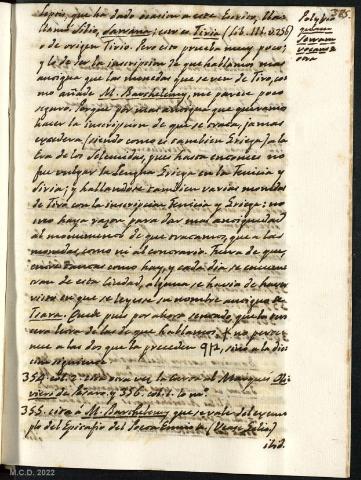 385.
que ha dado ocasion a este
llama Silio, Sarrana; esto es Tiria (Lib. III. v. 256)
o de origen Tirio. Pero esto prueba muy poco;
y lo de ser la inscripcion de que hablamos mas
antigua que las monedas que se ven de Tiro, co=
mo añade M. Barthelemy, me parece poco
seguro. Porque por mas antigua que queramos
hacer la Inscripcion de que se trata, jamas
excedera (siendo como es tambien Griega) a la
Era de los Seleucidas, pues hasta entonces no
fue vulgar la lengua Griega en la Fenicia y
Siria; y hallandose tambien varias monedas
de Tiro con la inscripcion Fenicia y Griega: no
veo haya razon para dar mas antiguedad
al monumento de que tratamos, que a las
monedas, como ni al contrario. Fuera de que,
entre tantas como hay, y cada dia se encuen
tran de esta Ciudad, alguna se havia de haver
visto en que se leyese su nombre antiguo de
Tsara. Quede pues por ahora sentado, que la ter
cera letra de las de que hablamos no perte
nece a las dos que la preceden, sino a la dic
cion siguiente.
354. col. 2. cita otra vez la Carta al Marqués Oli
vieri de Pesaro y 356. col. 1. lo mo.
355. cita a M. Barthelemy que se vale del exem
plo del Epitafio del Poeta Ennio (Vease Salia)
ibid.